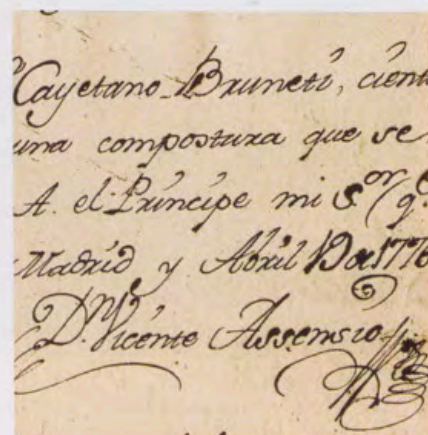 Cayetano Bruneti, cient
una compostura que se
A. el Príncipe mi S.or (q.e
Madrid y Abril 19 de 1776
D.n Vicente Assensio